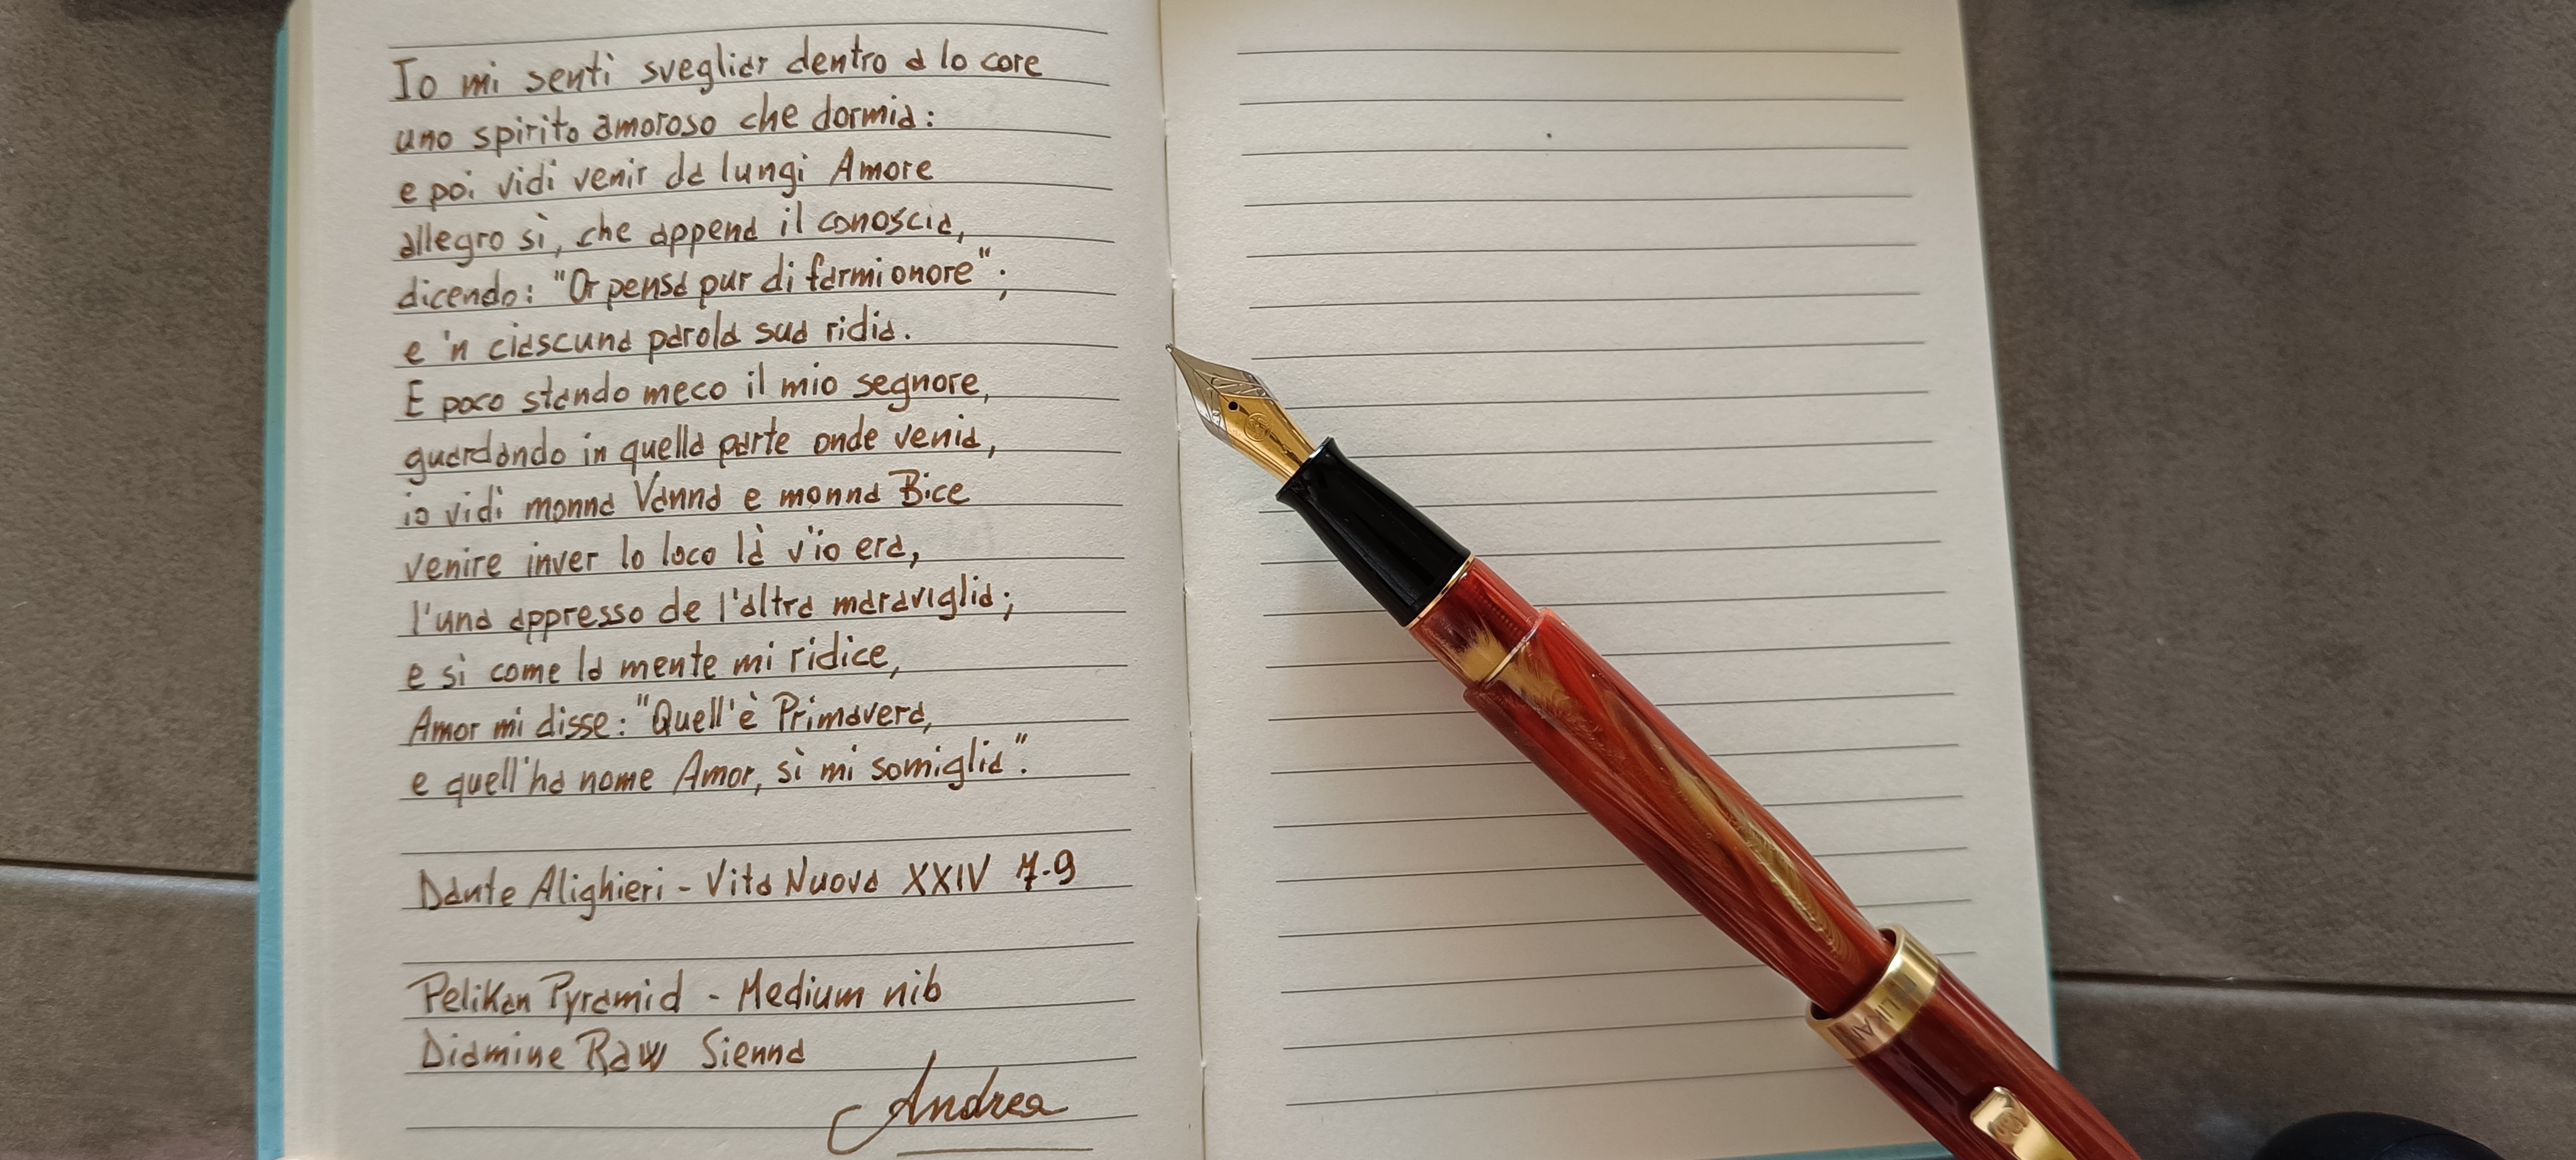 Io mi sentì svegliar dentro a lo core
uno spirito amoroso che dormia:
e poi vidi venir da lungi Amore
allegro sì, che appena il conoscia,
dicendo: "Or pensa pur di farmi onore";
e 'n ciascuna parola sua ridia.
E poco stando meco il mio segnore,
guardando in quella parte onde venia,
io vidi monna Vanna e monna Bice
venire inver lo loco là v'io era,
l'una appresso de l'altra maraviglia;
e sì come la mente mi ridice,
Amor mi disse: "Quell'è Primavera,
e quell'ha nome Amor, sì mi somiglia".
Dante Alighieri - Vita Nuova XXIV 7-9
Pelikan Pyramid - Medium nib
Diamine Raw Sienna
Andrea